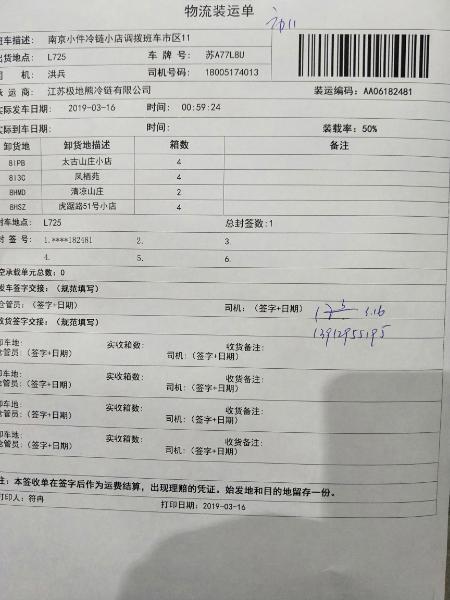 物流装运单
班车描述: 南京小件冷链小店调拨班车市区11
出货地点: L725 车 牌 号: 苏A77L8U
司 机: 洪兵 司机号码: 18005174013
承 运 商: 江苏极地熊冷链有限公司 装运编码: AA06182481
实际发车日期: 2019-03-16 时间: 00:59:24
实际到车日期: 时间: 装载率: 50%
卸货地 卸货地描述 箱数 备注
8IPB 太古山庄小店 4
8I3C 凤栖苑 4
8HMD 清凉山庄 2
8HSZ 虎踞路51号小店 4
封车地点: L725 总封签数:1
封 签 号: 1.****182481 2. 3.
4. 5. 6.
空承载单元总数: 0
发车签字交接: (规范填写)
仓管员: (签字+日期) 司机: (签字+日期) 3.16
收货签字交接: (规范填写) 13912955195
卸车地: 实收箱数: 收货备注:
仓管员: (签字+日期) 司机: (签字+日期)
卸车地: 实收箱数: 收货备注:
仓管员: (签字+日期) 司机: (签字+日期)
卸车地: 实收箱数: 收货备注:
仓管员: (签字+日期) 司机: (签字+日期)
卸车地: 实收箱数: 收货备注:
仓管员: (签字+日期) 司机: (签字+日期)
注: 本签收单在签字后作为运费结算, 出现理赔的凭证。始发地和目的地留存一份。
打印人: 符冉 打印日期: 2019-03-16